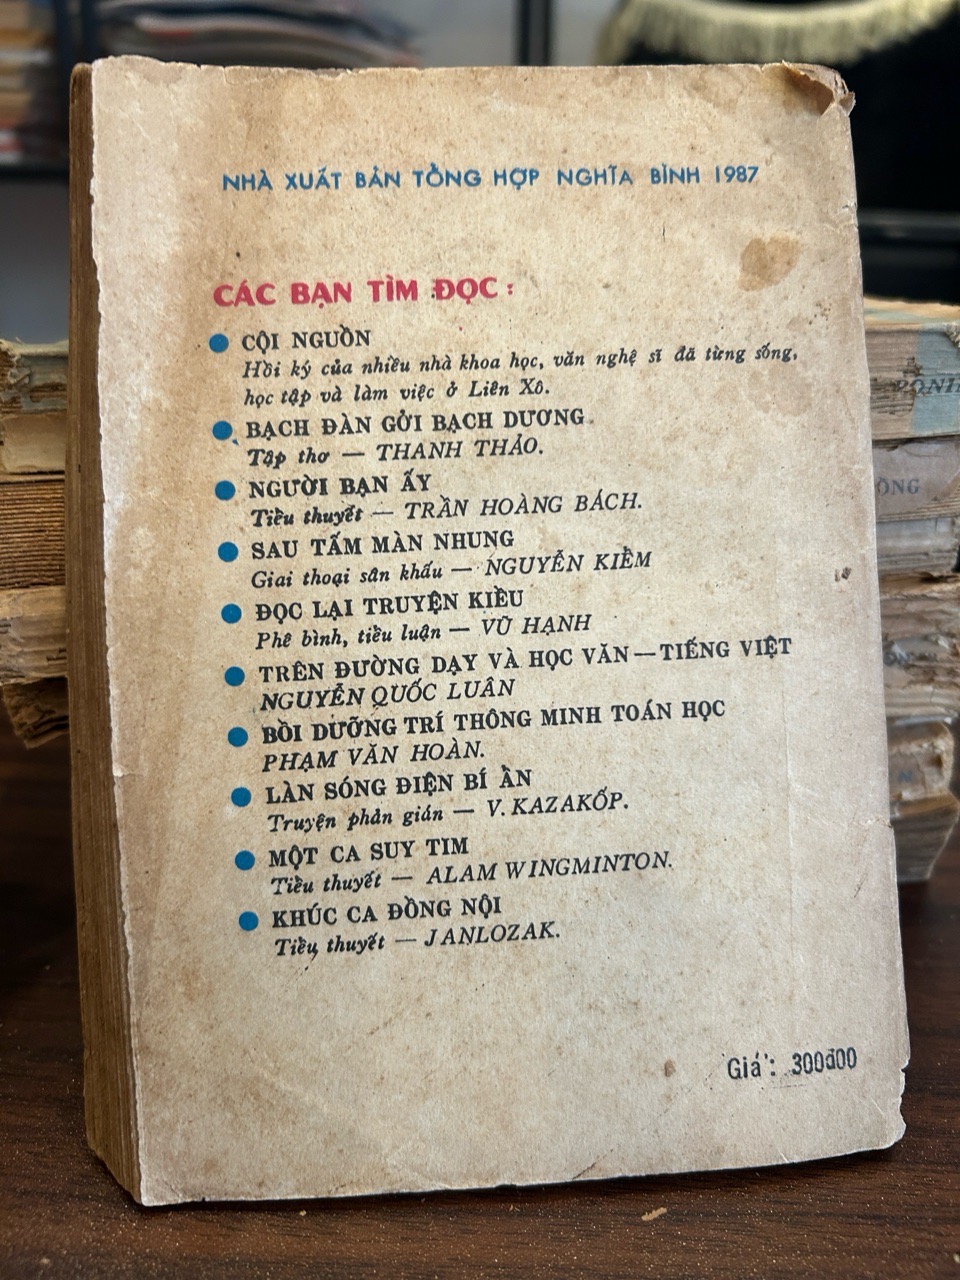 NHÀ XUẤT BẢN TỔNG HỢP NGHĨA BÌNH 1987
CÁC BẠN TÌM ĐỌC :
● CỘI NGUỒN
Hồi ký của nhiều nhà khoa học, văn nghệ sĩ đã từng sống,
học tập và làm việc ở Liên Xô.
● BẠCH ĐÀN GỞI BẠCH DƯƠNG
Tập thơ — THANH THẢO.
● NGƯỜI BẠN ẤY
Tiểu thuyết — TRẦN HOÀNG BÁCH.
● SAU TẤM MÀN NHUNG
Giai thoại sân khấu — NGUYỄN KIỂM
● ĐỌC LẠI TRUYỆN KIỀU
Phê bình, tiểu luận — VŨ HẠNH
● TRÊN ĐƯỜNG DẠY VÀ HỌC VĂN — TIẾNG VIỆT
NGUYỄN QUỐC LUÂN
● BỒI DƯỠNG TRÍ THÔNG MINH TOÁN HỌC
PHẠM VĂN HOÀN.
● LÀN SÓNG ĐIỆN BÍ ẨN
Truyện phản gián — V. KAZAKỐP.
● MỘT CA SUY TIM
Tiểu thuyết — ALAM WINGMINTON.
● KHÚC CA ĐỒNG NỘI
Tiểu thuyết — JANLOZAK.
Giá : 300đ00